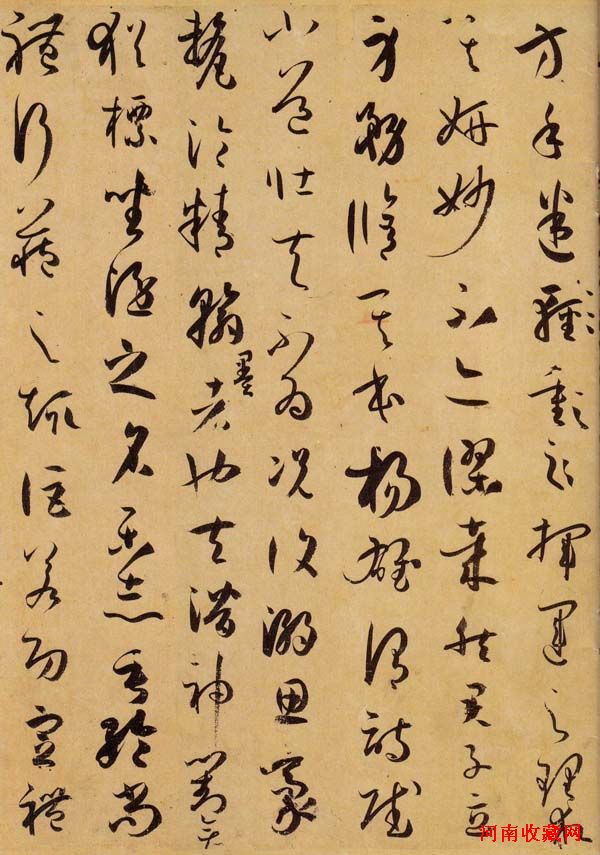 方手迷揮運之理求
其妍妙不亦謬哉然君子立
身務脩其本楊雄謂詩賦
小道壯夫不為況復溺思豪
釐淪精翰墨者也夫潛神對弈
猶標坐隱之名樂志垂綸尚
體行藏之趣詎若功宣禮
河南收藏网